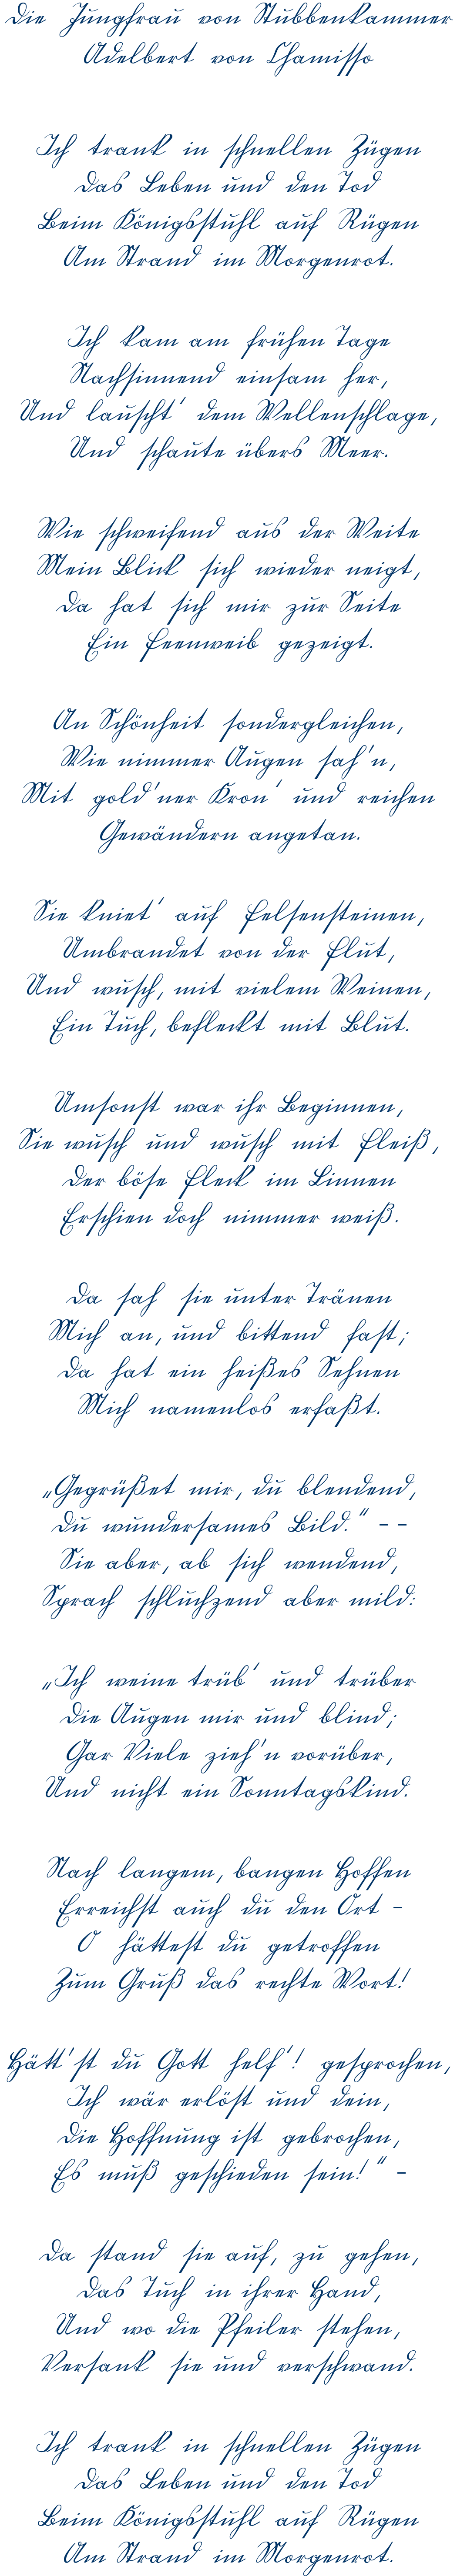 Die Jungfrau von Stubbenkammer
Adelbert von Chamisso
Ich trank in schnellen Zügen
Das Leben und den Tod
Beim Königsstuhl auf Rügen
Am Strand im Morgenrot.
Ich kam am frühen Tage
Nachsinnend einsam her,
Und lauscht' dem Wellenschlage,
Und schaute übers Meer.
Wie schweifend aus der Weite
Mein Blick sich wieder neigt,
Da hat sich mir zur Seite
Ein Feenweib gezeigt.
An Schönheit sondergleichen,
Wie nimmer Augen sah'n,
Mit gold'ner Kron' und reichen
Gewändern angetan.
Sie kniet' auf Felsensteinen,
Umbrandet von der Flut,
Und wusch, mit vielem Weinen,
Ein Tuch, befleckt mit Blut.
Umsonst war ihr Beginnen,
Sie wusch und wusch mit Fleiß,
Der böse Fleck im Linnen
Erschien doch nimmer weiß.
Da sah sie unter Tränen
Mich an, und bittend fast;
Da hat ein heißes Sehnen
Mich namenlos erfaßt.
„Gegrüßet mir, du blendend,
Du wundersames Bild.“ – –
Sie aber, ab sich wendend,
Sprach schluchzend aber mild:
„Ich weine trüb' und trüber
Die Augen mir und blind;
Gar Viele zieh'n vorüber,
Und nicht ein Sonntagskind.
Nach langem, bangen Hoffen
Erreichst auch du den Ort –
O hättest du getroffen
Zum Gruß das rechte Wort!
Hätt'st du Gott helf'! gesprochen,
Ich wär erlöst und dein,
Die Hoffnung ist gebrochen,
Es muß geschieden sein!“ –
Da stand sie auf, zu gehen,
Das Tuch in ihrer Hand,
Und wo die Pfeiler stehen,
Versank sie und verschwand.
Ich trank in schnellen Zügen
Das Leben und den Tod
Beim Königsstuhl auf Rügen
Am Strand im Morgenrot.